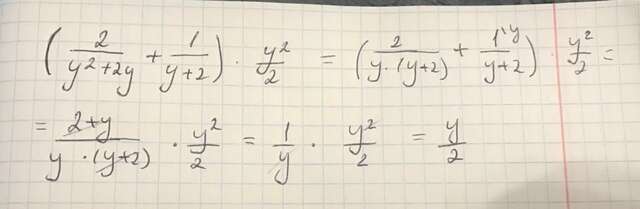 (2/(y²+2y) + 1/(y+2)) · y²/2 = (2/(y·(y+2)) + 1^{\y}/(y+2)) · y²/2 =
= (2+y)/(y·(y+2)) · y²/2 = 1/y · y²/2 = y/2